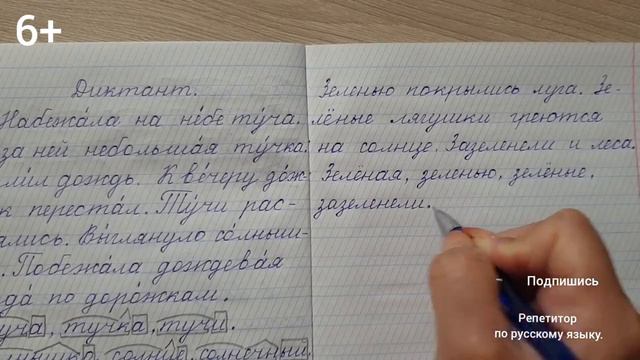 6+
Диктант.
Набежа́ла на не́бе ту́ча.
за ней небольша́я ту́чка.
ли́л дождь. К ве́черу дож-
к переста́л. Ту́чи рас-
ались. Вы́глянуло со́лныш-
. Побежа́ла дождева́я
да́ по доро́жкам.
уча, тучка, тучи.
солнце, солнечный.
Зеленью покрылись луга. Зе-
лёные лягушки греются
на солнце. Зазеленели и леса.
Зелёная, зеленью, зелёные,
зазеленели.
Подпишись
Репетитор
по русскому языку.